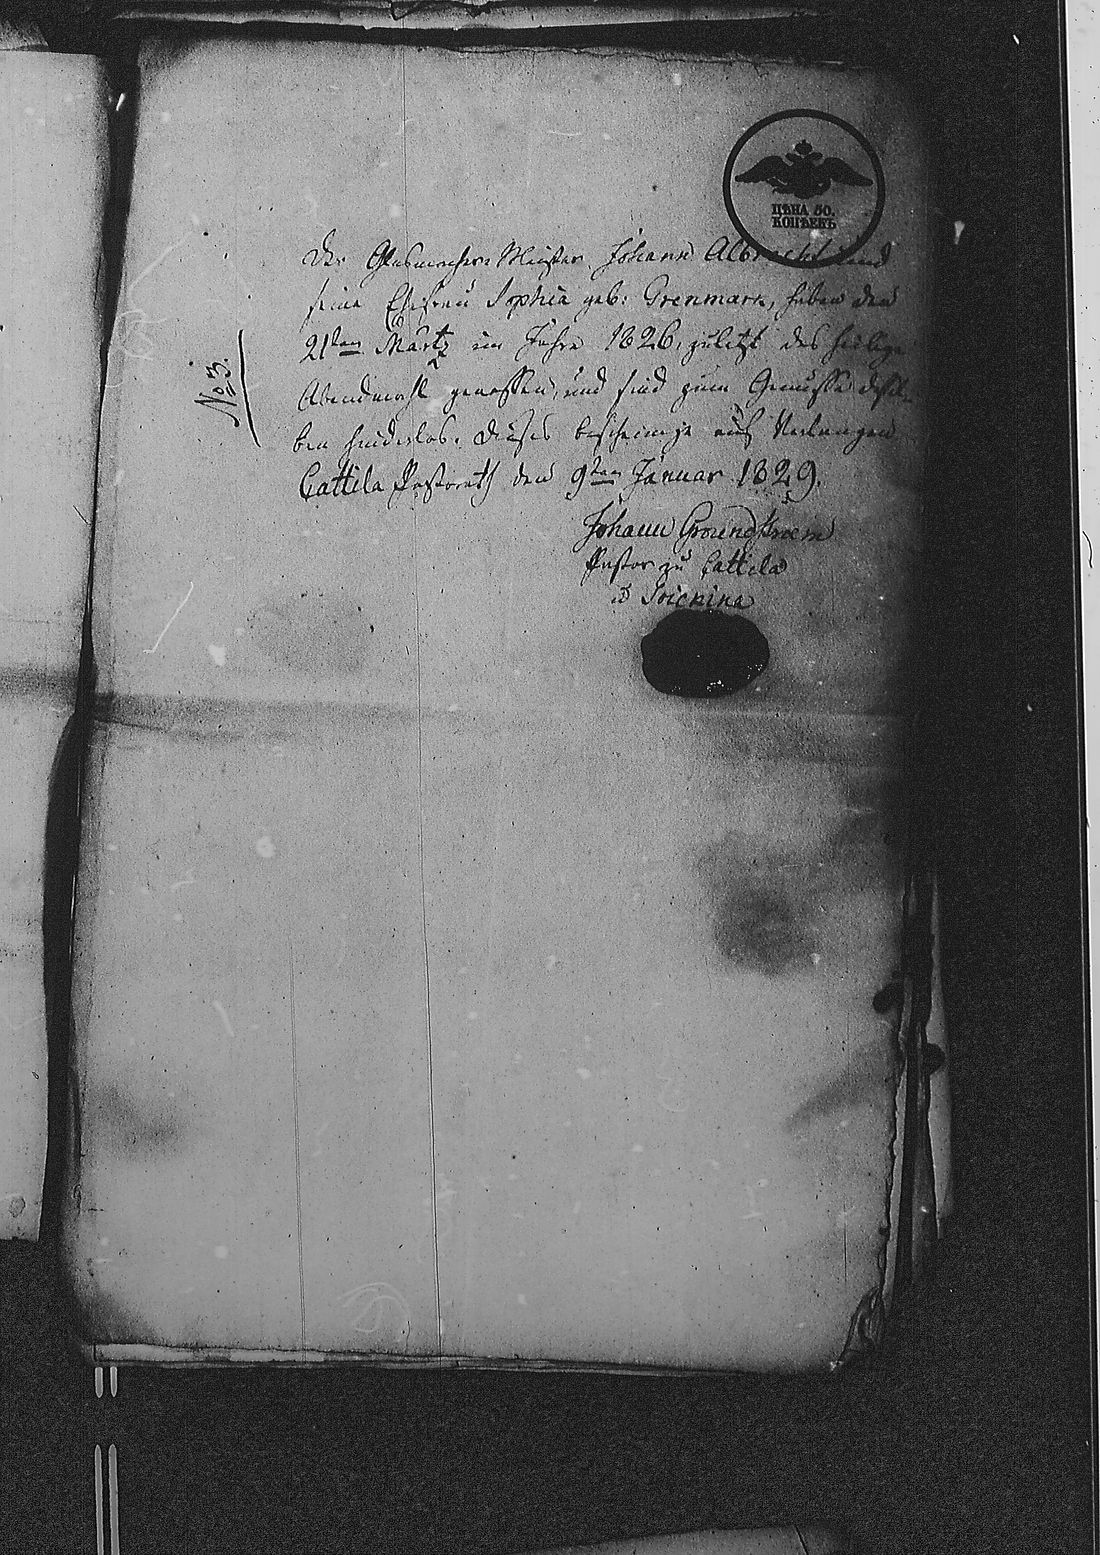 ЦѢНА 50.
КОПѢЕКЪ
No 3.
Der Glasmacher Meister Johann Albrecht und
seine Ehefrau Sophia geb: Grenmark, haben den
21ten Martz im Jahre 1826, zuletzt das heilige
Abendmahl genossen, und sind zum Genusse dessel-
ben hinderlos. Dieses bescheinige auf Verlangen
Cattila Pastorath den 9ten Januar 1829.
Johann Groundstroem
Pastor zu Cattila
u